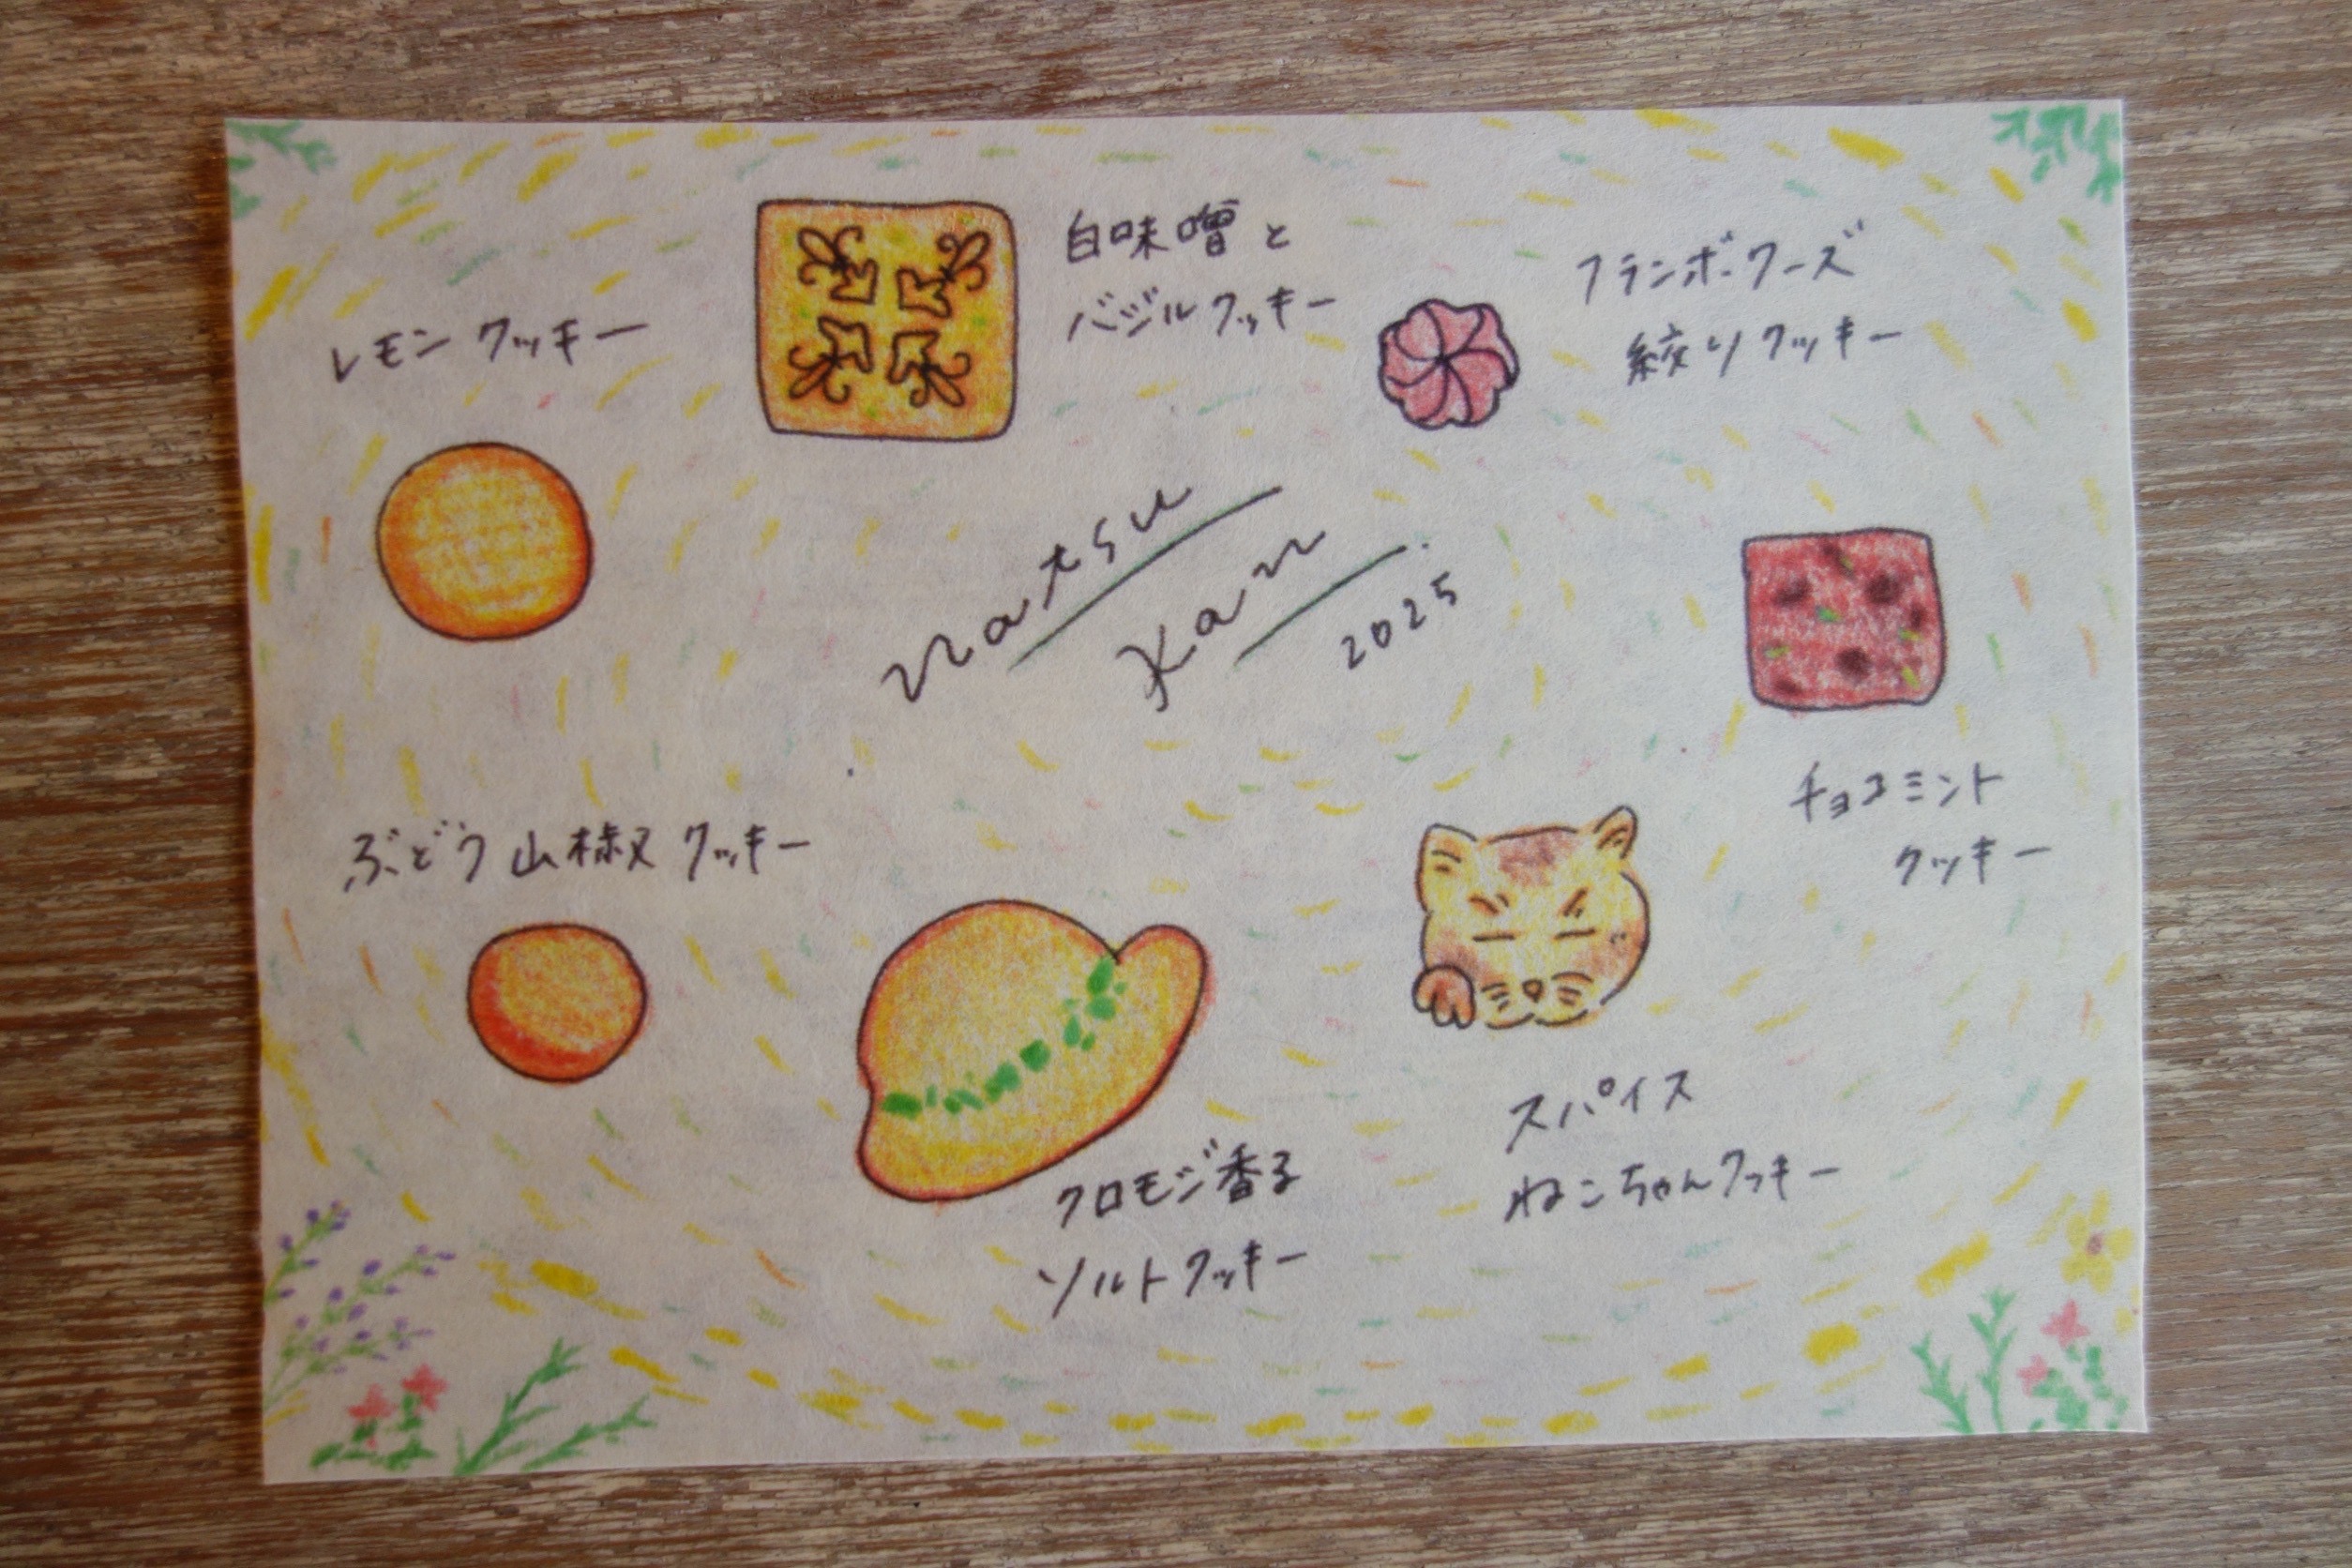 レモンクッキー
白味噌と
バジルクッキー
フランボワーズ
絞りクッキー
natsu
kan
2025
チョコミント
クッキー
ぶどう山椒クッキー
クロモジ香る
ソルトクッキー
スパイス
ねこちゃんクッキー